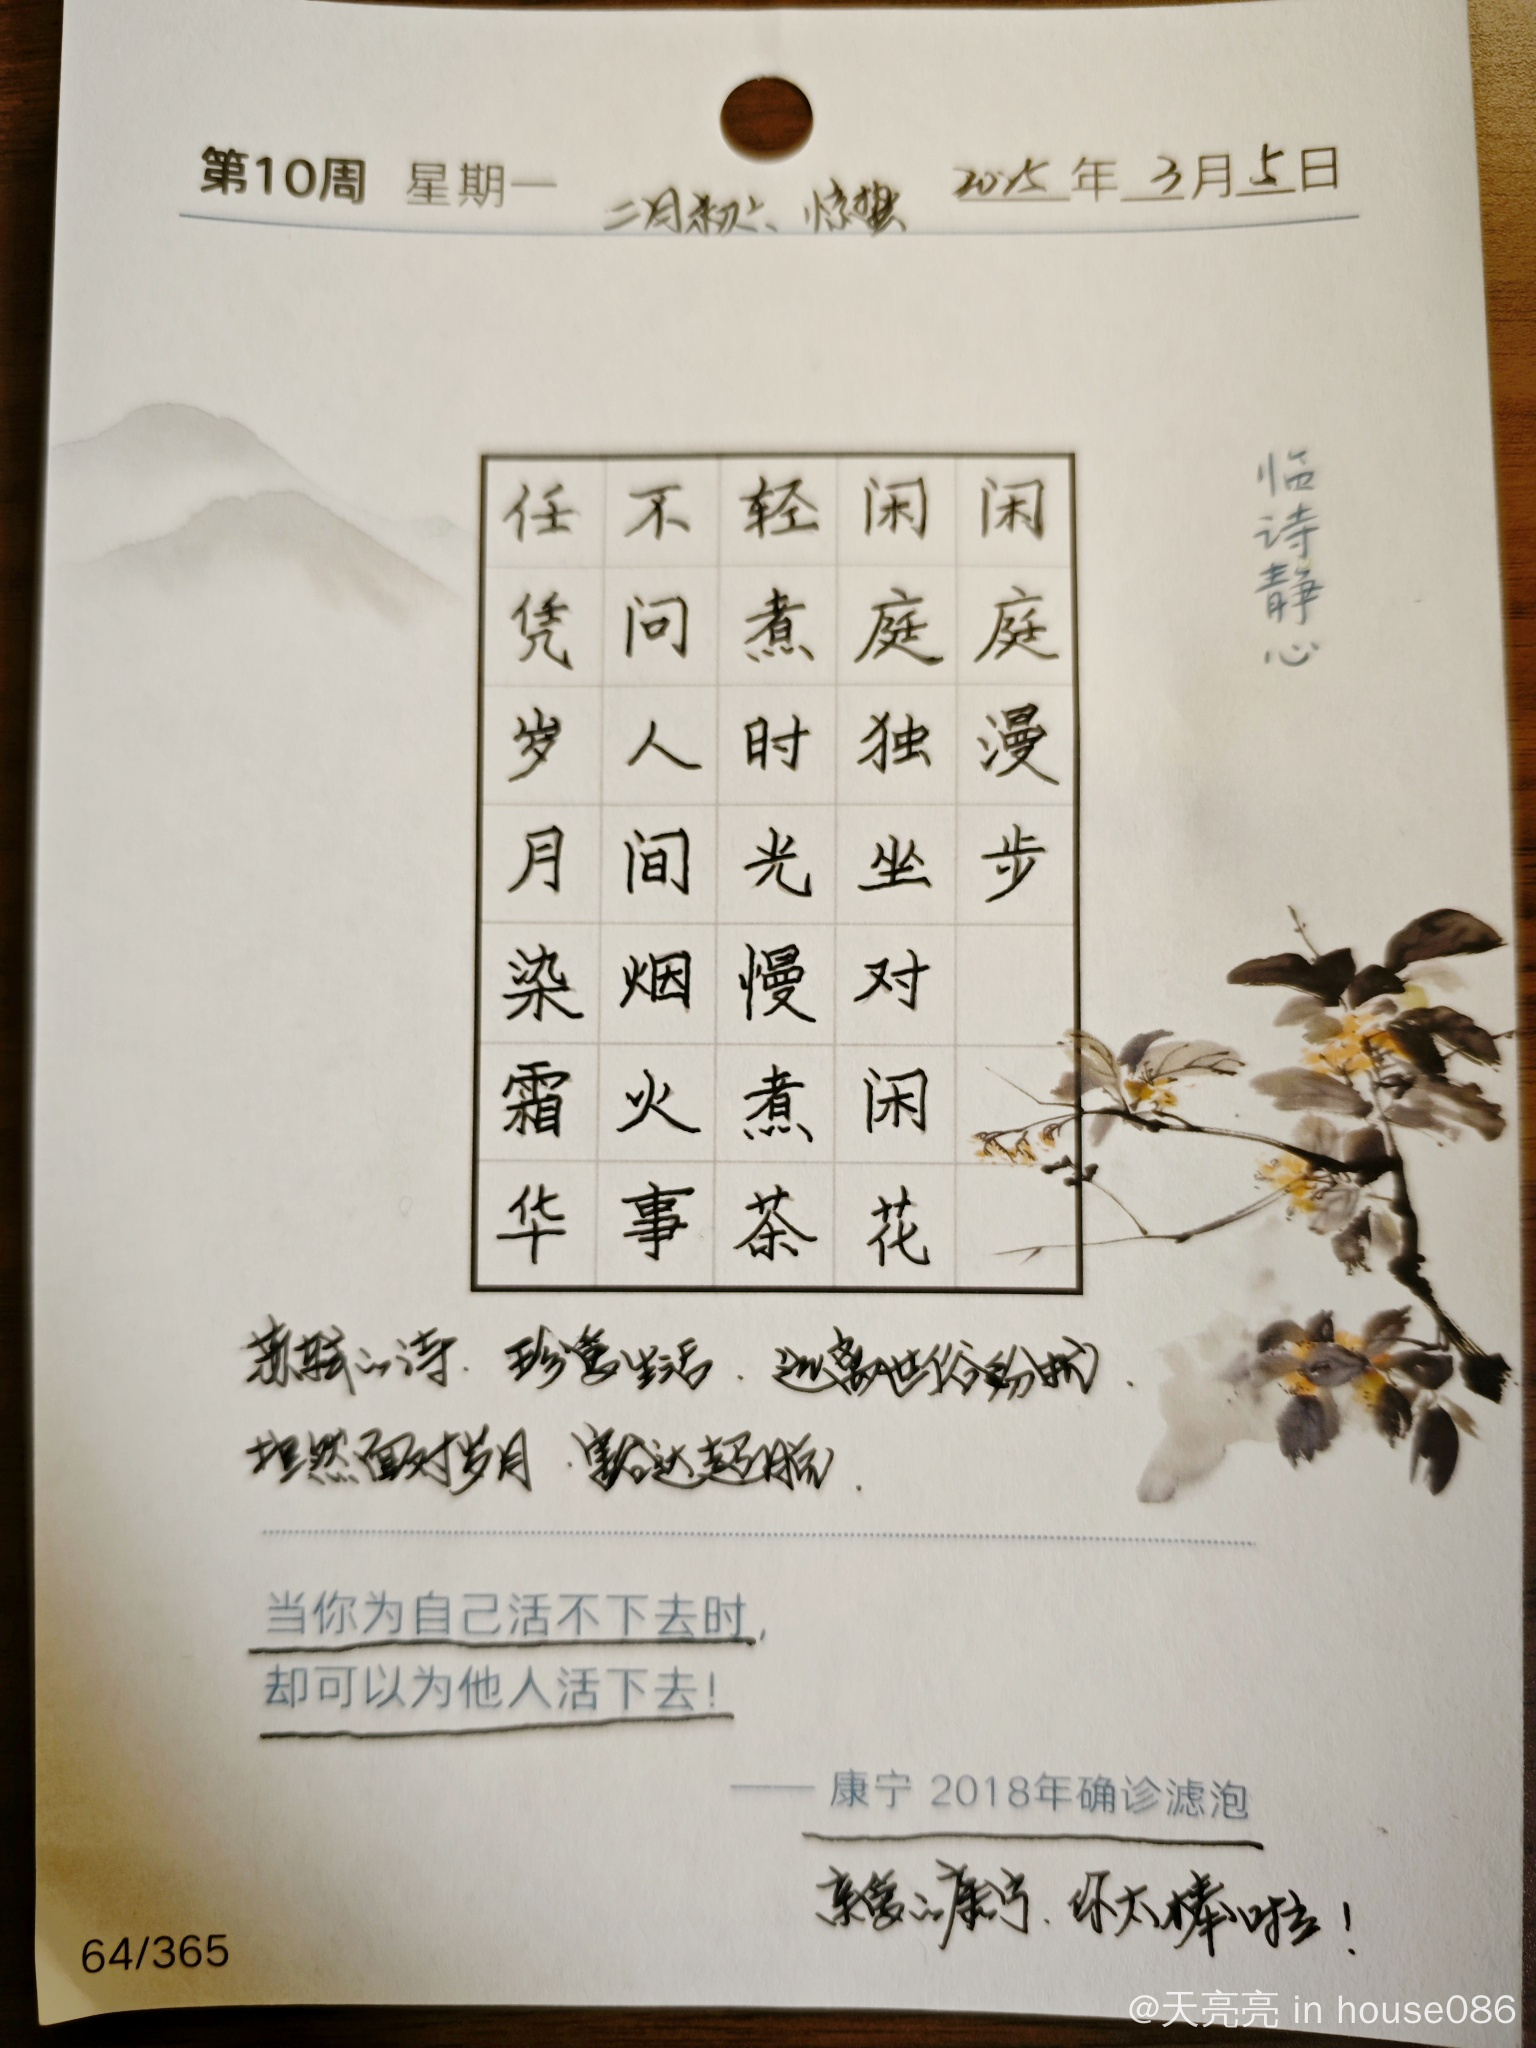 第10周 星期一 二月初六、惊蛰 2025年3月5日
临诗静心
闲庭漫步
闲庭独坐对闲花
轻煮时光慢煮茶
不问人间烟火事
任凭岁月染霜华
苏轼的诗.珍爱生活.远离世俗纷扰.
坦然面对岁月.豁达超脱.
当你为自己活不下去时,
却可以为他人活下去!
—— 康宁 2018年确诊滤泡
亲爱的康宁.你太棒啦!
64/365
@天亮亮 in house086